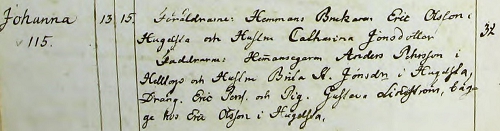 Johanna 13 15. Föräldrarne: Hemmans Brukaren Eric Olsson i
115. Hugelsta och Hustru Catharina Jönsdotter 37
Faddrarne: Hemansegarn Anders Pehrsson i
och Hustru Brita St. Jönsdr i Hugelsta,
Dräng. Eric Pers. och Pig. Gustava Lindström, båda
ge hos Eric Olsson i Hugelsta,